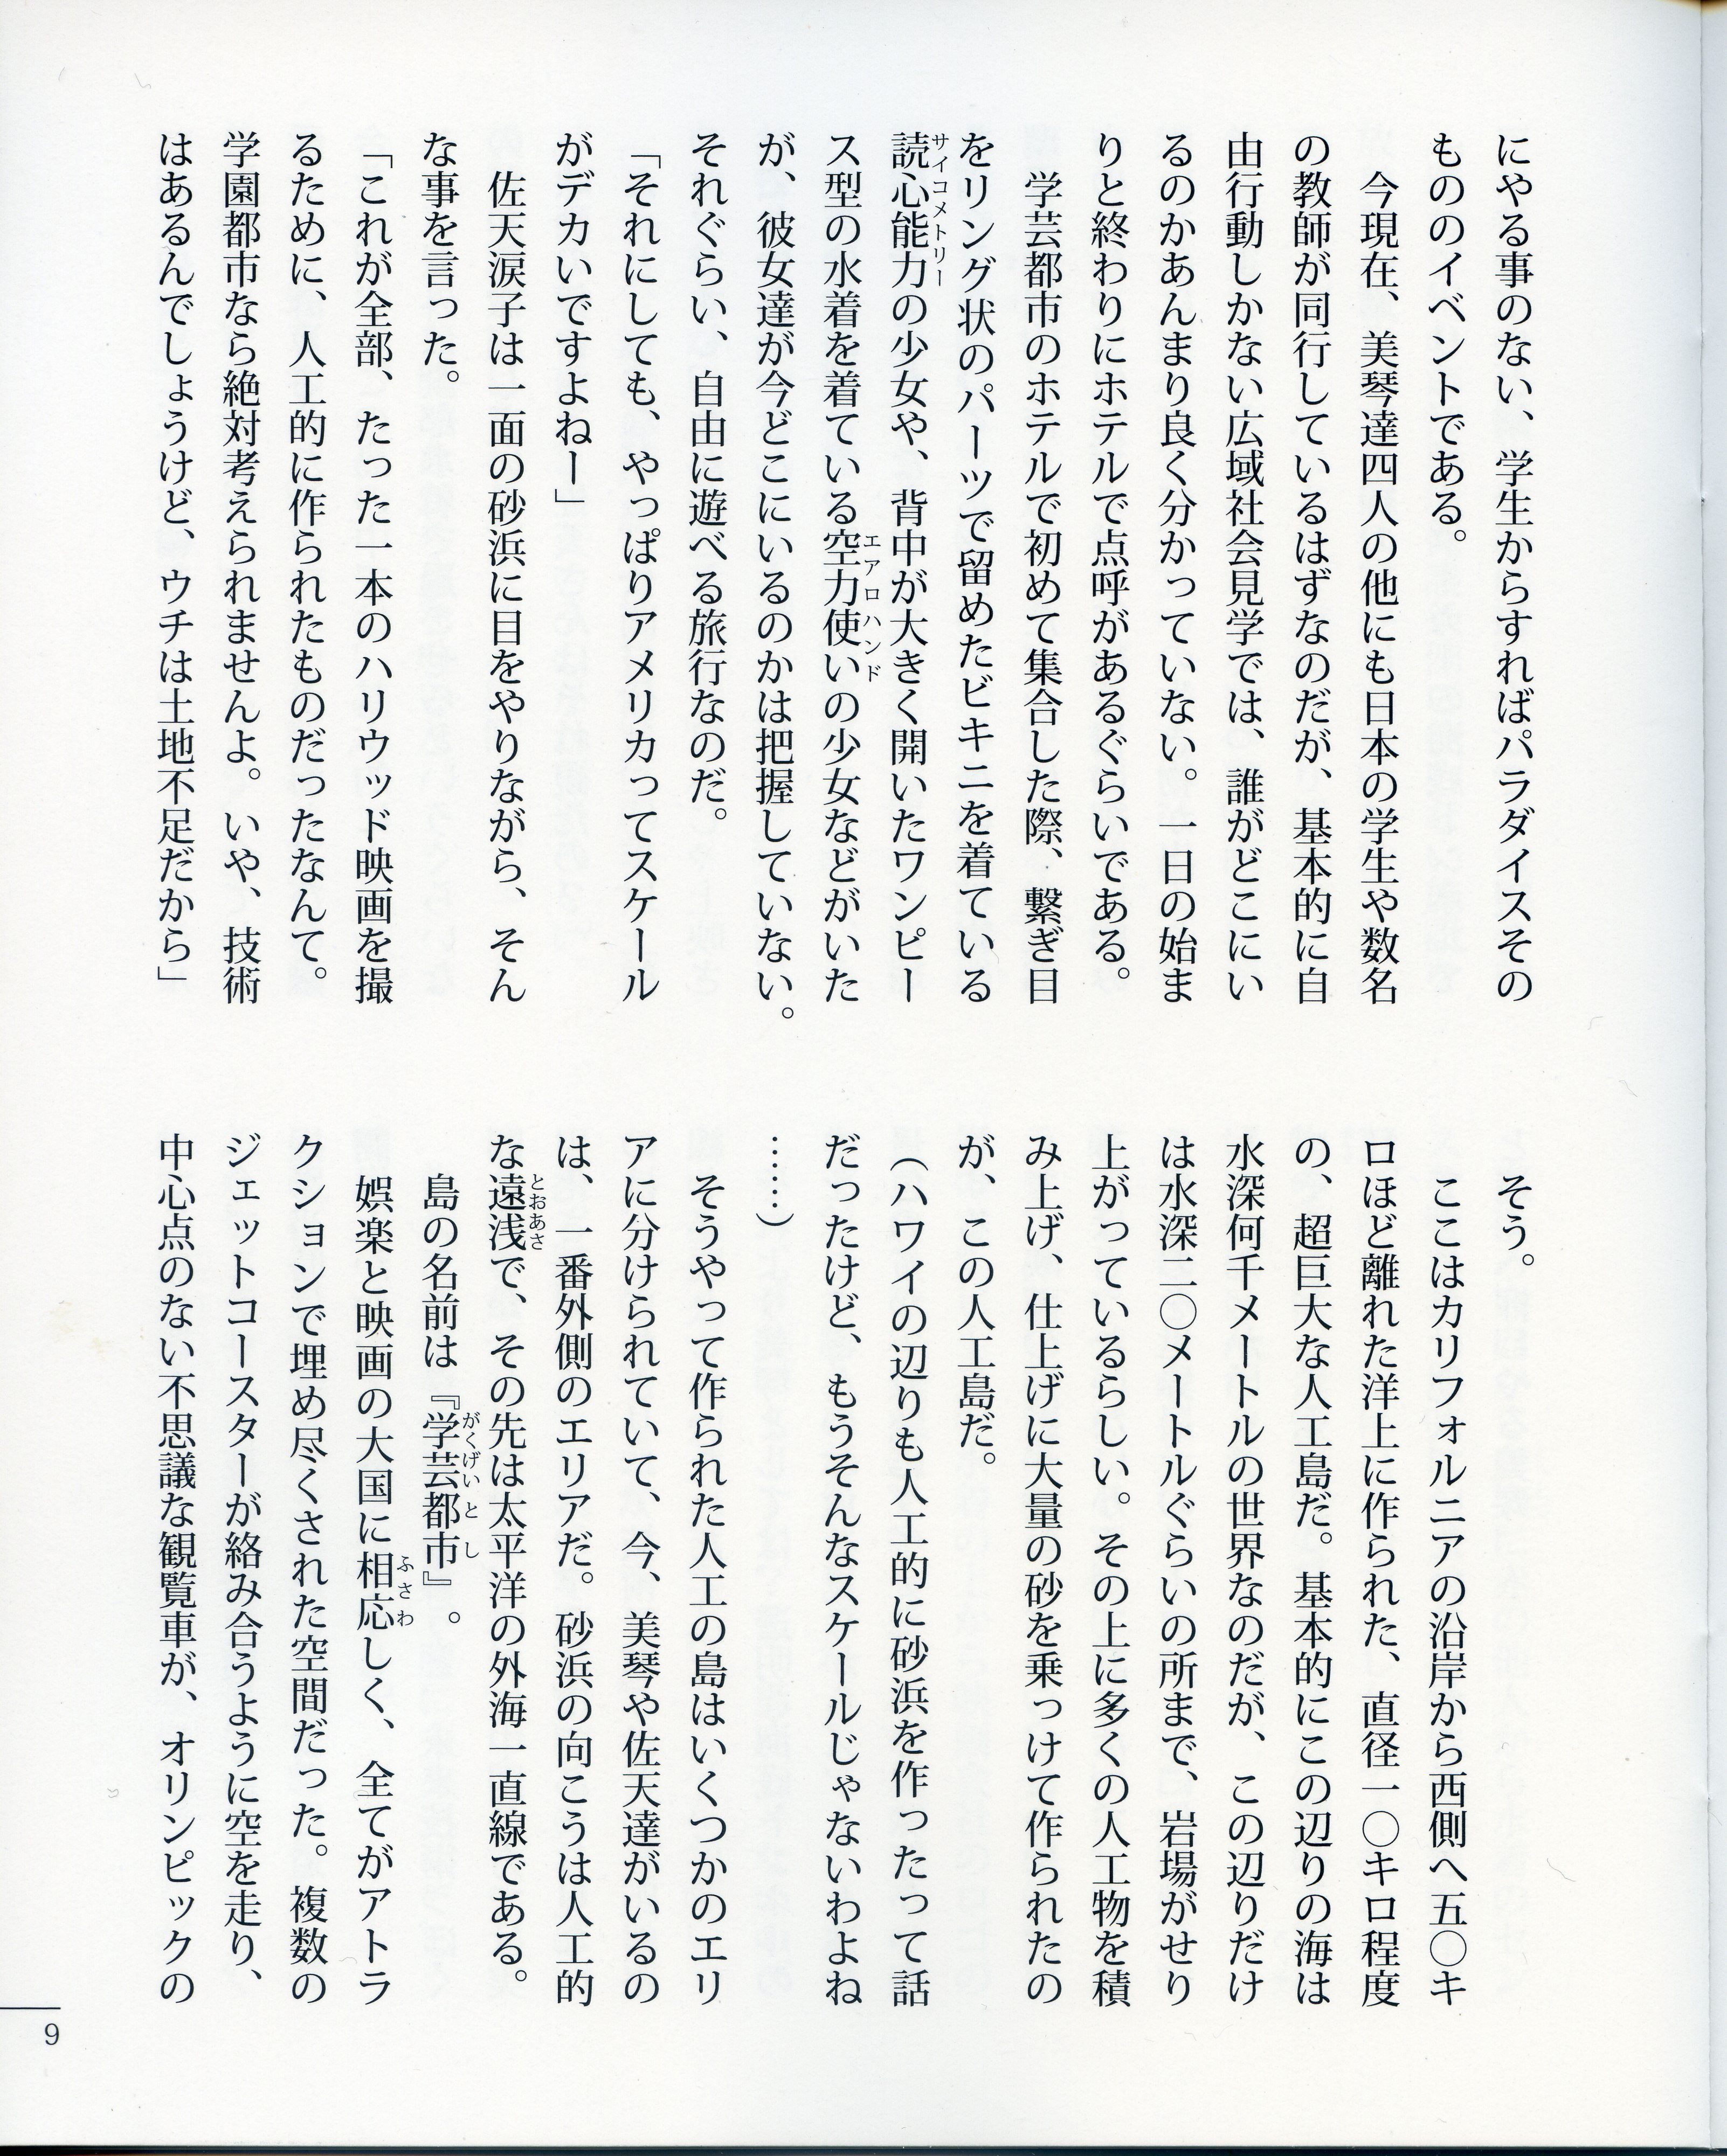 にやる事のない、学生からすればパラダイスその
もののイベントである。
　今現在、美琴達四人の他にも日本の学生や数名
の教師が同行しているはずなのだが、基本的に自
由行動しかない広域社会見学では、誰がどこにい
るのかあんまり良く分かっていない。一日の始ま
りと終わりにホテルで点呼があるぐらいである。
　学芸都市のホテルで初めて集合した際、繋ぎ目
をリング状のパーツで留めたビキニを着ている
読心能力サイコメトリーの少女や、背中が大きく開いたワンピー
ス型の水着を着ている空力使いエアロハンドの少女などがいた
が、彼女達が今どこにいるのかは把握していない。
それぐらい、自由に遊べる旅行なのだ。
「それにしても、やっぱりアメリカってスケール
がデカいですよねー」
　佐天涙子は一面の砂浜に目をやりながら、そん
な事を言った。
「これが全部、たった一本のハリウッド映画を撮
るために、人工的に作られたものだったなんて。
学園都市なら絶対考えられませんよ。いや、技術
はあるんでしょうけど、ウチは土地不足だから」
　そう。
　ここはカリフォルニアの沿岸から西側へ五〇キ
ロほど離れた洋上に作られた、直径一〇キロ程度
の、超巨大な人工島だ。基本的にこの辺りの海は
水深何千メートルの世界なのだが、この辺りだけ
は水深二〇メートルぐらいの所まで、岩場がせり
上がっているらしい。その上に多くの人工物を積
み上げ、仕上げに大量の砂を乗っけて作られたの
が、この人工島だ。
（ハワイの辺りも人工的に砂浜を作ったって話
だったけど、もうそんなスケールじゃないわよね
……）
　そうやって作られた人工の島はいくつかのエリ
アに分けられていて、今、美琴や佐天達がいるの
は、一番外側のエリアだ。砂浜の向こうは人工的
な遠浅とおあさで、その先は太平洋の外海一直線である。
　島の名前は『学芸都市がくげいとし』。
　娯楽と映画の大国に相応ふさわしく、全てがアトラ
クションで埋め尽くされた空間だった。複数の
ジェットコースターが絡み合うように空を走り、
中心点のない不思議な観覧車が、オリンピックの
9